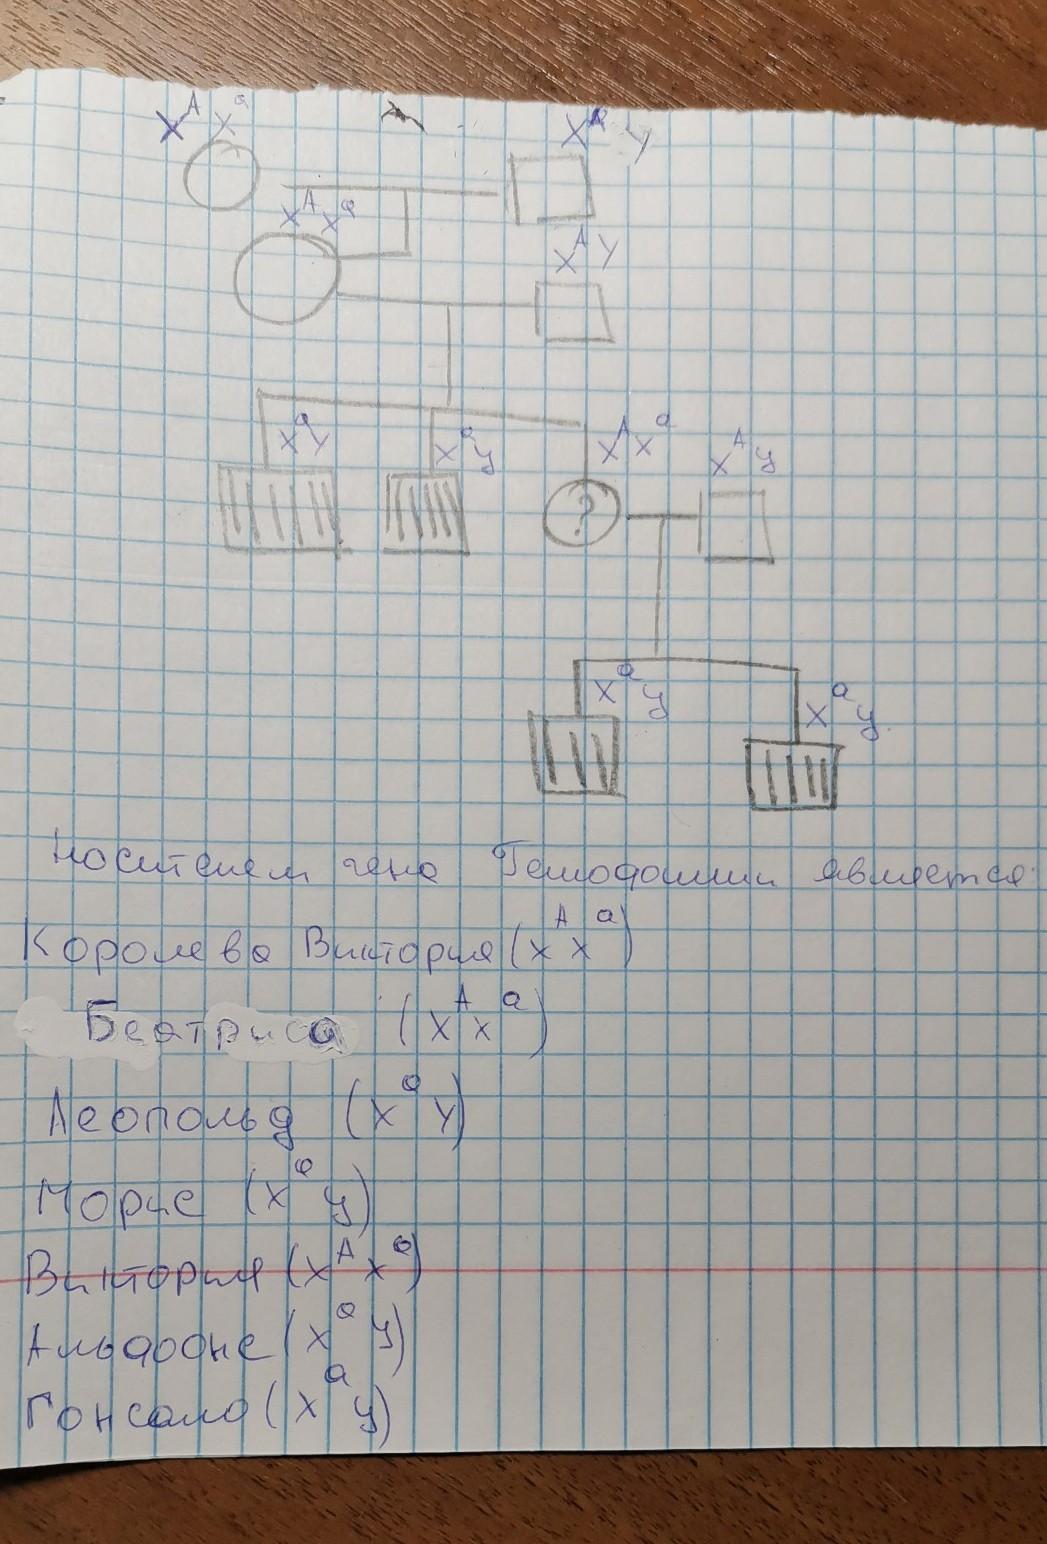 X^A X^a
X^A y
X^A X^a
X^A Y
X^a Y
X^a y
X^A X^a
X^A y
?
X^a y
X^a y
Носителем гена Гемофилии является:
Королева Виктория (X^A X^a)
Беатриса (X^A X^a)
Леопольд (X^a Y)
Морис (X^a y)
Виктория (X^A X^a)
(X^a y)
(X^a y)